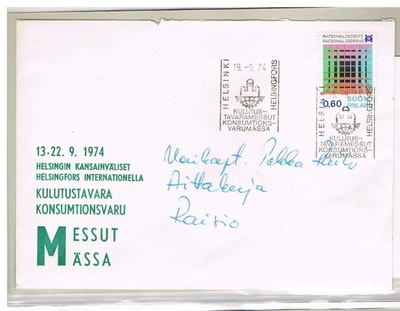 RATIONALISOINTI
RATIONALISERING
0.60 SUOMI
FINLAND
HELSINKI 19.-9. 74 HELSINGFORS
KULUTUS-
TAVARAMESSUT
KONSUMTIONS-
VARUMÄSSA
HELSINKI HELSINGFORS
KULUTUS-
TAVARAMESSUT
KONSUMTIONS-
VARUMÄSSA
13-22. 9. 1974
HELSINGIN KANSAINVÄLISET
HELSINGFORS INTERNATIONELLA
KULUTUSTAVARA
KONSUMTIONSVARU
MESSUT
MÄSSA
Pekka
Aittakuja
Raisio